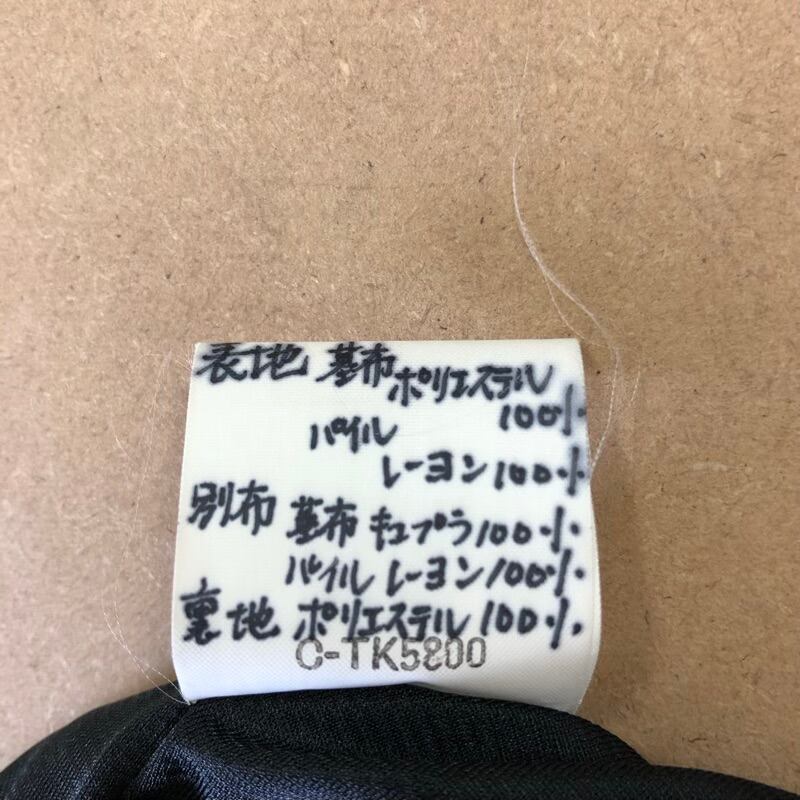 表地 基布 ポリエステル
100%
パイル
レーヨン100%
別布 基布 キュプラ100%
パイル レーヨン100%
裏地 ポリエステル100%
C-TK5800